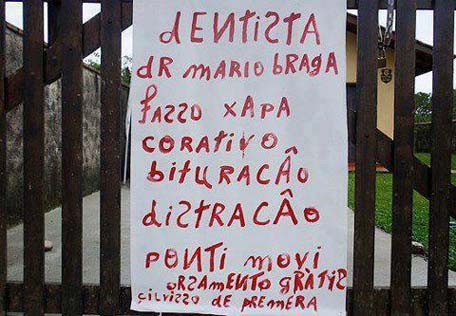 dENtiSTA
dR MARiO bRAGA
fAZZO XAPA
CORAtiVO
bitURACÂO
diStRACÂO
PONti MOVi
ORSAMENtO GRÀtiS
CiLVizzO dE PREMERA